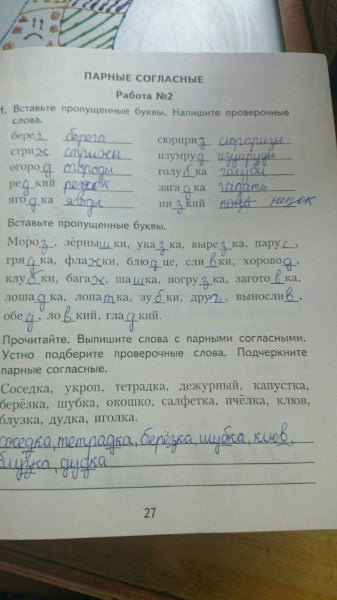 ПАРНЫЕ СОГЛАСНЫЕ
Работа №2
1. Вставьте пропущенные буквы. Напишите проверочные
слова.
берег берега сюрприз сюрпризы
стриж стрижи изумруд изумруды
огород огороды голубка голуби
редкий редок загадка гадать
ягодка ягоды низкий низок
Вставьте пропущенные буквы.
Мороз, зёрнышки, указка, вырезка, парус,
грядка, флажки, блюдце, сливки, хоровод,
клубки, багаж, шашка, погрузка, заготовка,
лошадка, лопатка, зубки, друг, вынослив,
обед, ловкий, гладкий.
Прочитайте. Выпишите слова с парными согласными.
Устно подберите проверочные слова. Подчеркните
парные согласные.
Соседка, укроп, тетрадка, дежурный, капустка,
берёзка, шубка, окошко, салфетка, пчёлка, клюв,
блузка, дудка, иголка.
соседка, тетрадка, берёзка, шубка, клюв,
блузка, дудка
27